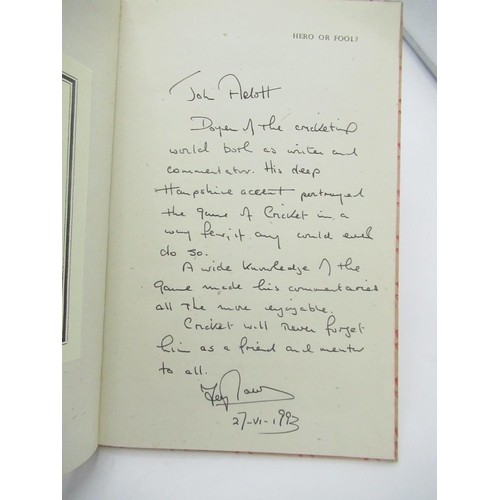 HERO OR FOOL?
John Arlott
Doyen of the cricketing
world both as writer and
commentator. His deep
Hampshire accent portrayed
the game of Cricket in a
way few, if any would ever
do so.
A wide knowledge of the
game made his commentaries
all the more enjoyable.
Cricket will never forget
him as a friend and mentor
to all.
27-VI-1993